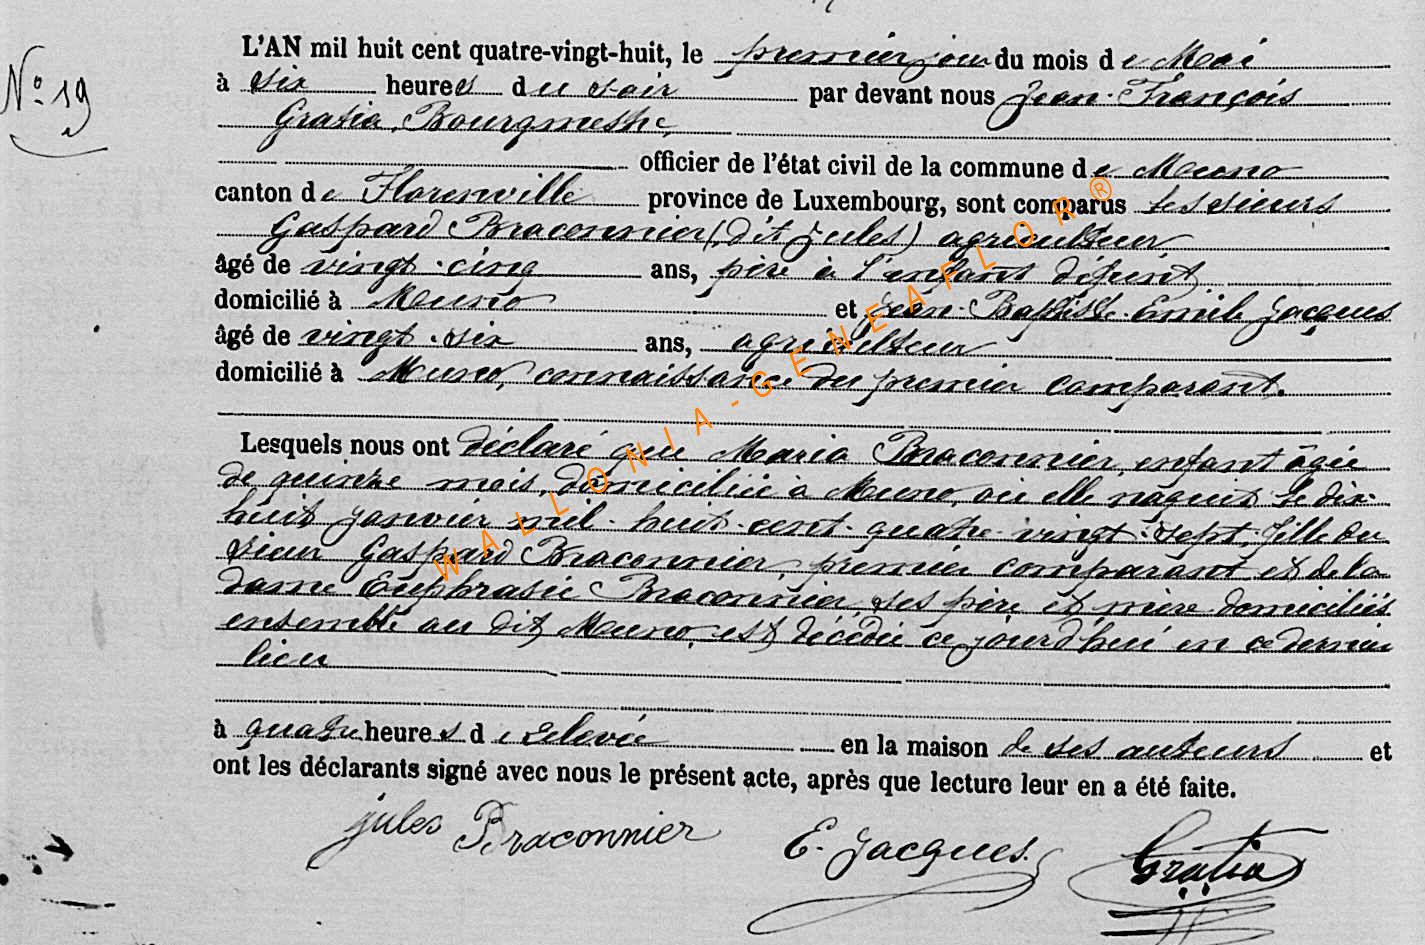 L'AN mil huit cent quatre-vingt-huit, le premier jour du mois de Mai
N° 19
à six heures du soir par devant nous Jean-François
Gratia, Bourgmestre,
officier de l'état civil de la commune de Muno
canton de Florenville province de Luxembourg, sont comparus les sieurs
Gaspard Braconnier (dit Jules) agriculteur
âgé de vingt-cinq ans, père à l'enfant défunt
domicilié à Muno et Jean-Baptiste-Emile Jacques
âgé de vingt-six ans, agriculteur
domicilié à Muno, connaissance du premier comparant.
Lesquels nous ont déclaré que Maria Braconnier, enfant âgée
de quinze mois, domiciliée à Muno, où elle naquit le dix-
huit janvier mil-huit-cent-quatre-vingt-sept, fille du
sieur Gaspard Braconnier, premier comparant et de la
dame Euphrasie Braconnier, ses père et mère domiciliés
ensemble au dit Muno, est décédée ce jourd'hui en ce dernier
lieu
à quatre heures de relevée en la maison de ses auteurs et
ont les déclarants signé avec nous le présent acte, après que lecture leur en a été faite.
Jules Braconnier E. Jacques. Gratia
WALLONIA-GENEAFLOR®